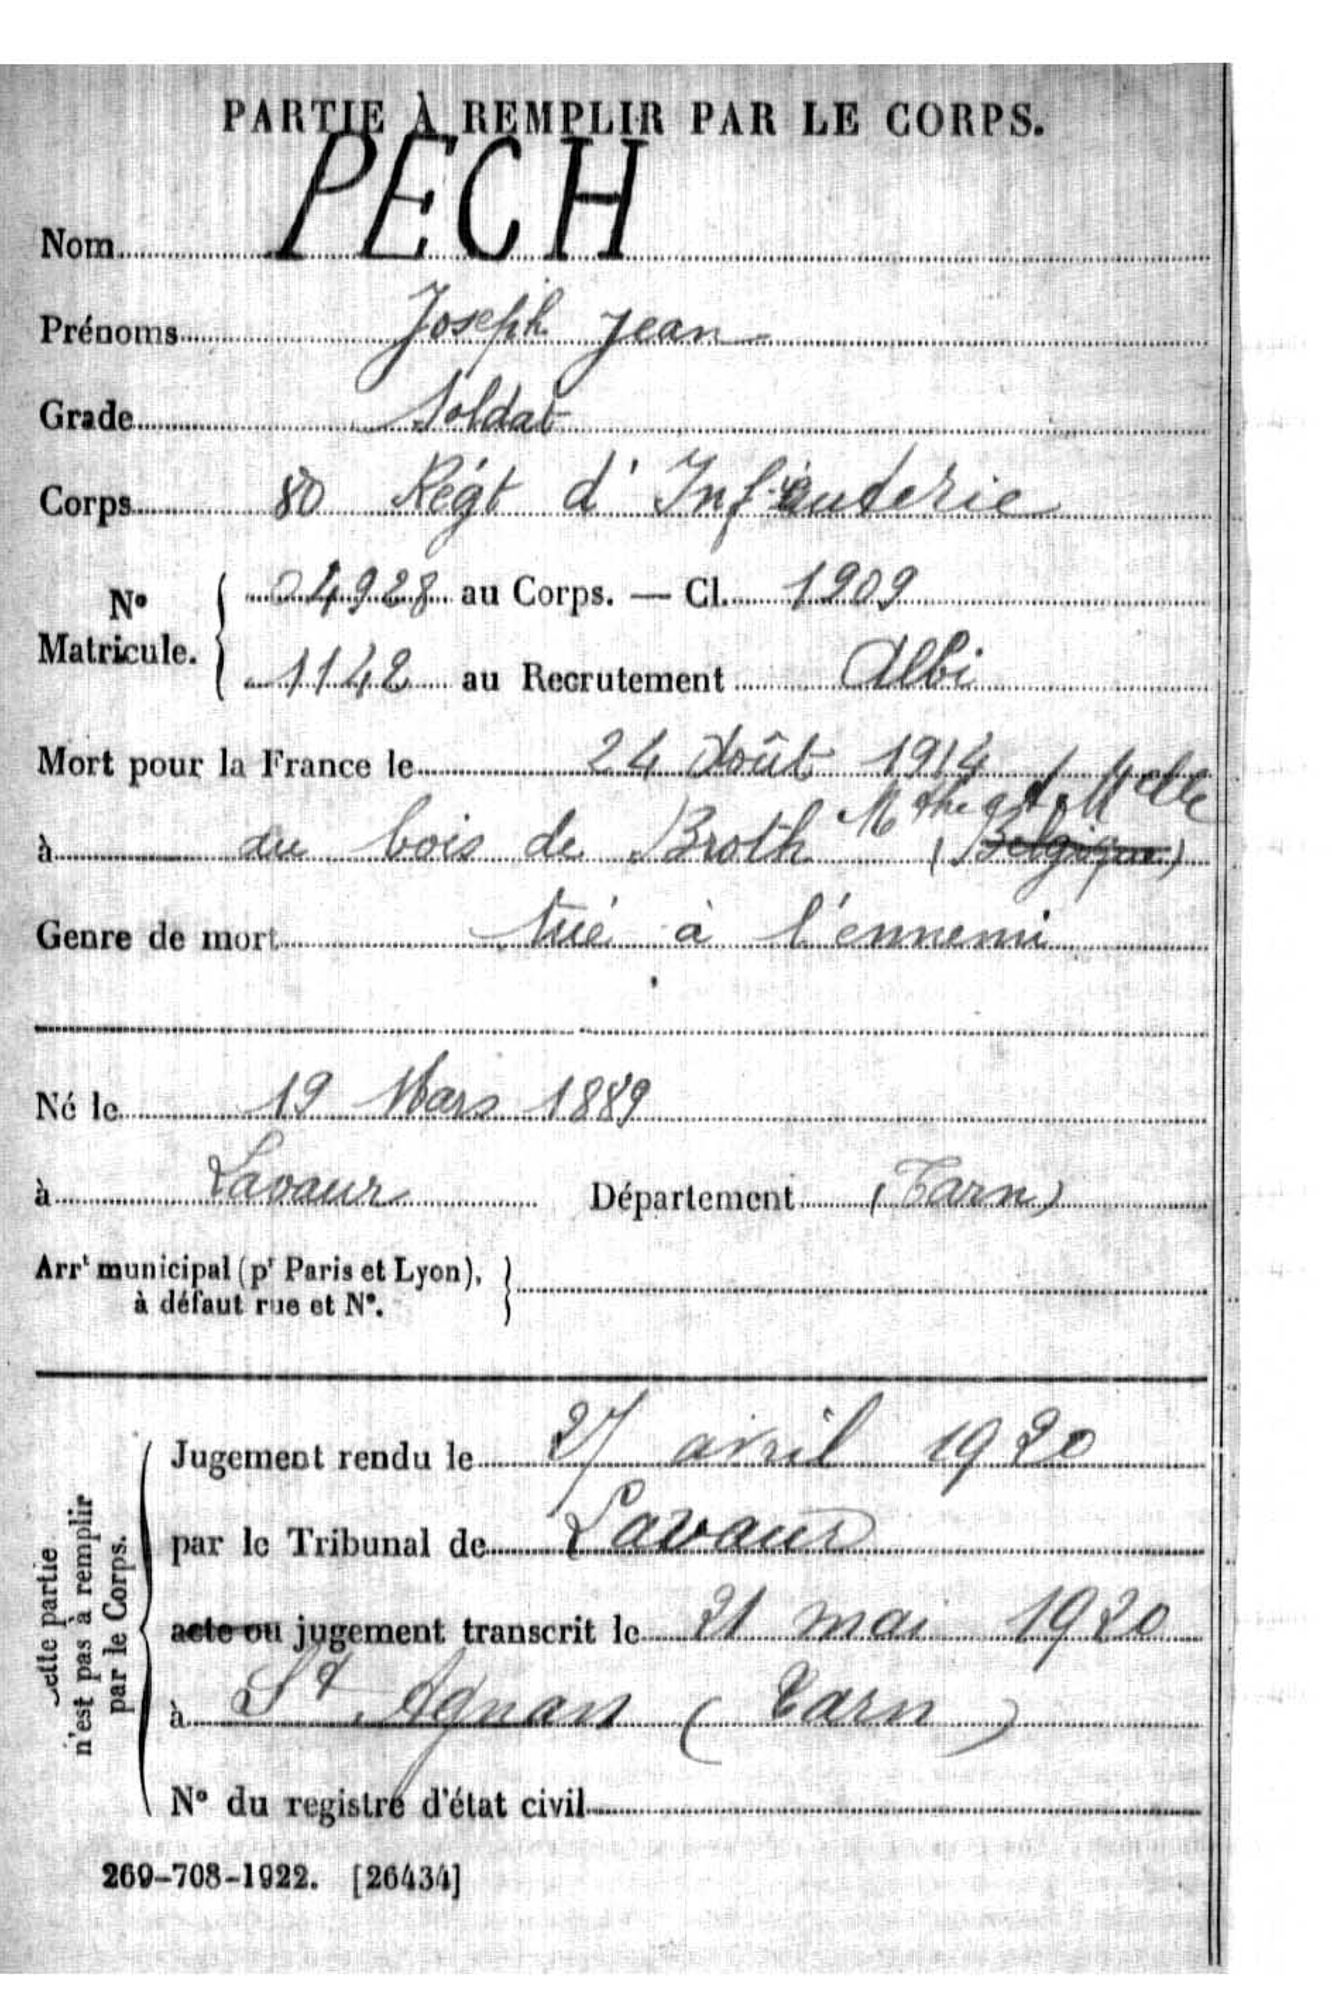 PARTIE À REMPLIR PAR LE CORPS.
Nom PECH
Prénoms Joseph Jean
Grade Soldat
Corps 80 Régt d'Infanterie
No Matricule. { 04928 au Corps. — Cl. 1909
1142 au Recrutement Albi
Mort pour la France le 24 Août 1914
Mthe et Melle
à au bois de Broth (Belgique)
Genre de mort tué à l'ennemi
Né le 19 Mars 1889
à Lavaur Département (Tarn)
Arrt municipal (pr Paris et Lyon), }
à défaut rue et No.
Cette partie
n'est pas à remplir
par le Corps.
Jugement rendu le 27 avril 1920
par le Tribunal de Lavaur
acte ou jugement transcrit le 21 mai 1920
à St Agnan (Tarn)
No du registre d'état civil
269-708-1922. [26434]